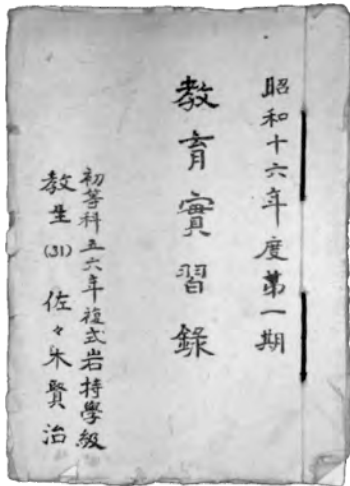 昭和十六年度第一期
教育實習錄
初等科五六年複式岩持學級
教生(31) 佐々木賢治